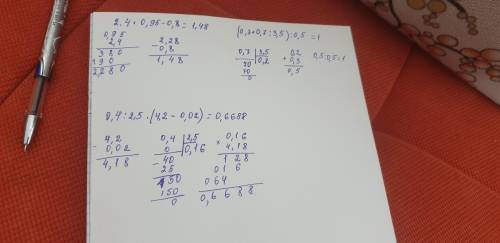 2,4 · 0,95 - 0,8 = 1,48
0,95
2,4
380
190
2,280
2,28
- 0,8
1,48
(0,3 + 0,7 : 3,5) : 0,5 = 1
0,7 | 3,5
70 | 0,2
70
0
0,2
+ 0,3
0,5
0,5 : 0,5 = 1
0,4 : 2,5 · (4,2 - 0,02) = 0,6688
- 4,2
0,02
4,18
0,4 | 2,5
0 | 0,16
- 40
25
150
150
0
× 0,16
4,18
128
016
064
0,6688